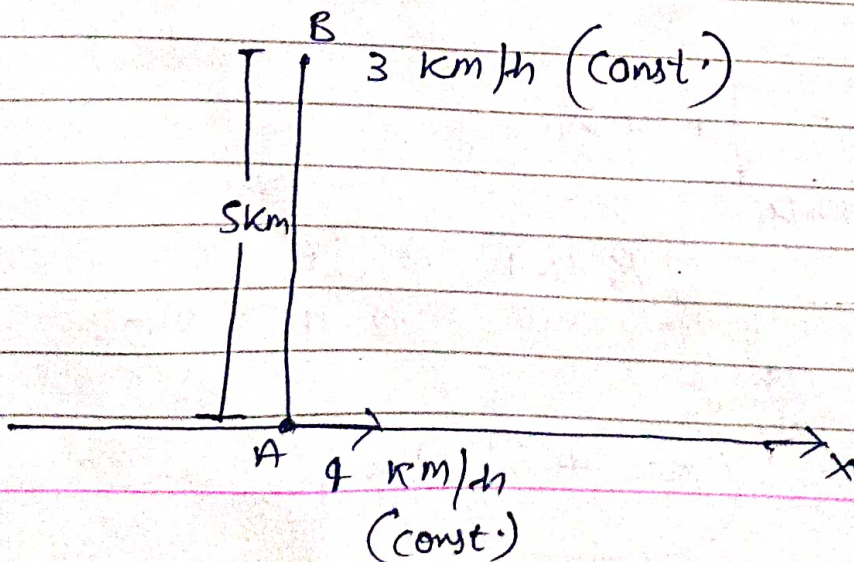 B
3 km/h (const.)
5km
A
4 km/h
X
(const.)